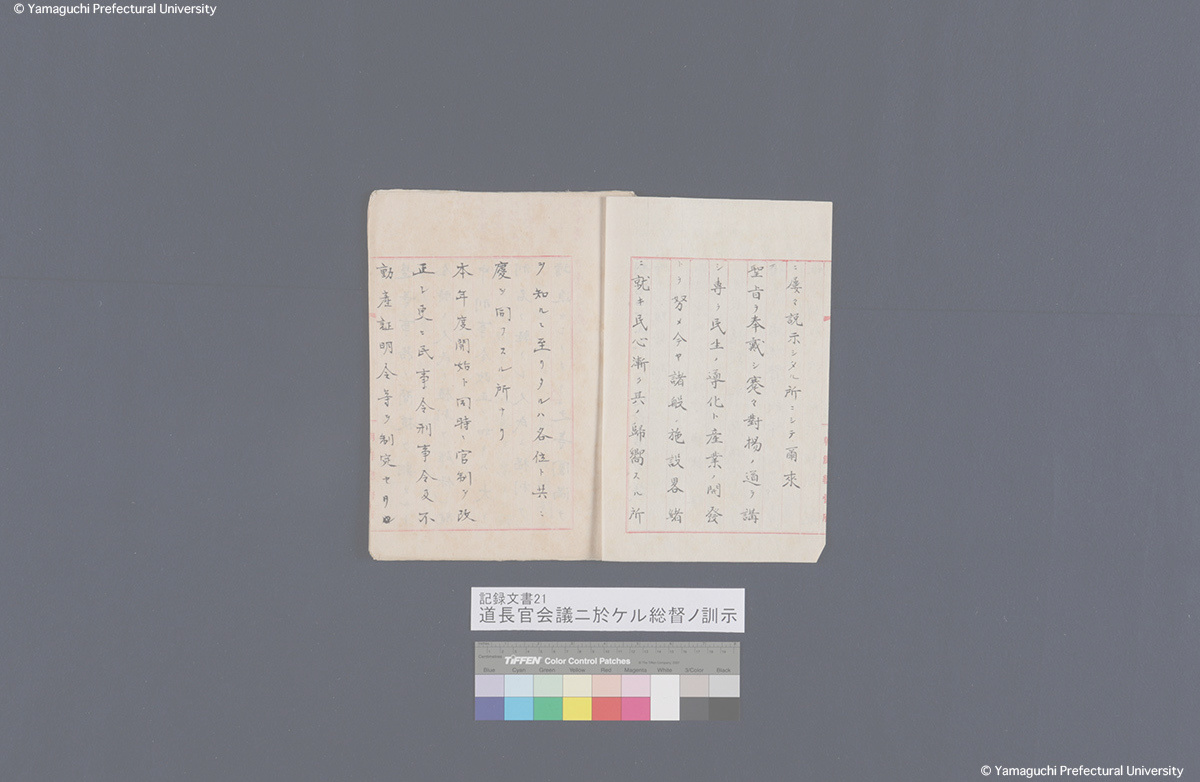 © Yamaguchi Prefectural University
ニ屡々説示シタル所ニシテ爾來
聖旨ヲ奉戴シ蹇々對揚ノ道ヲ講
シ専ラ民生ノ導化ト産業ノ開發
トヲ努メ今ヤ諸般ノ施設畧緒
ニ就キ民心漸ク其ノ歸嚮スル所
ヲ知ルニ至リタルハ各位ト共ニ
慶ヲ同フスル所ナリ
本年度開始ト同時ニ官制ヲ改
正シ更ニ民事令刑事令及不
動産証明令等ヲ制定セリ
記録文書21
道長官会議ニ於ケル総督ノ訓示
TIFFEN Color Control Patches
Blue Cyan Green Yellow Red Magenta White 3/Color Black
© Yamaguchi Prefectural University